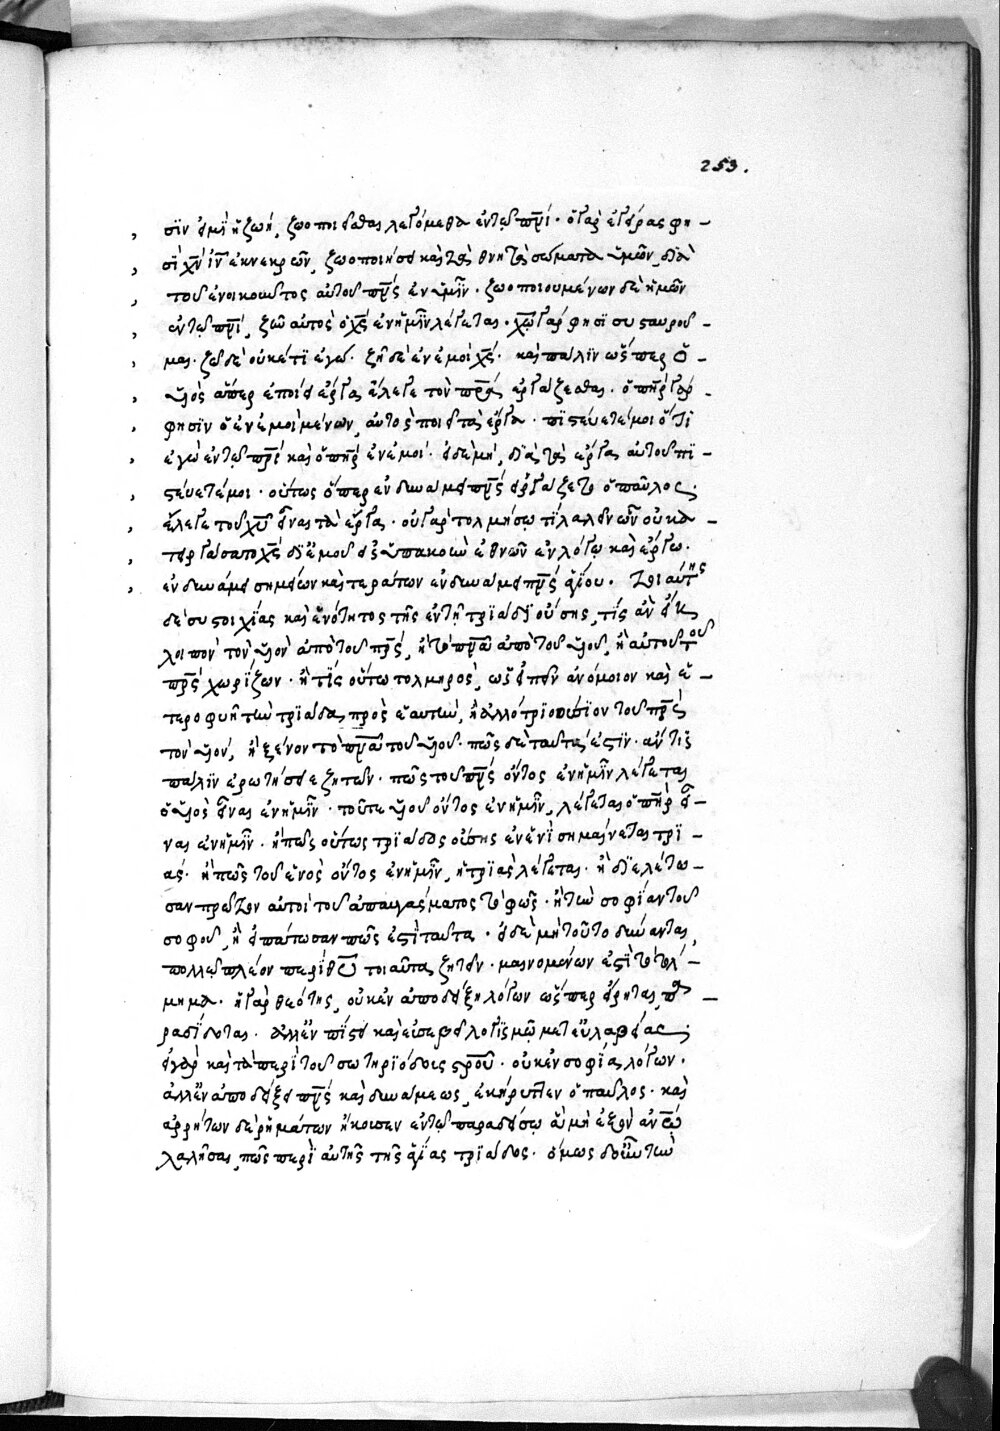 253.
σϊν εἰμὶ ἡ ζωή, ζωοποιεῖσθαι λεγόμεθα ἐν τῷ πνϊ· ὁ γὰρ ἐγείρας φη-
σὶ χν ιν ἐκ νεκρῶν, ζωοποιήσει καὶ τὰ θνητὰ σώματα ὑμῶν, διὰ
τοῦ ἐνοικοῦντος αὐτοῦ πνς ἐν ὑμῖν. ζωοποιουμένων δὲ ἡμῶν
ἐν τῷ πνϊ, ζῆν αὐτὸς ὁ χς ἐν ἡμῖν λέγεται. χω γάρ φησϊ συνεσταύρω-
μαι. ζῶ δὲ οὐκέτϊ ἐγώ. ζῇ δὲ ἐν ἐμοὶ χς. καὶ πάλϊν ὥσπερ ὁ
υἱὸς ἅπερ ἐποίει ἔργα, ἔλεγε τὸν πρα ἐργάζεσθαι. ὁ πηρ γάρ
φησϊν ὁ ἐν ἐμοὶ μένων, αὐτὸς ποιεῖ τὰ ἔργα. πϊστεύετέ μοι ὅτϊ
ἐγὼ ἐν τῷ πρϊ καὶ ὁ πηρ ἐν ἐμοί. εἰ δὲ μή, δϊὰ τὰ ἔργα αὐτοῦ πϊ-
στεύετέ μοι. οὕτως ἅπερ ἐν δυνάμει πνς εἰργάζετο ὁ παῦλος,
ἔλεγε τοῦ χυ εἶναι τὰ ἔργα. οὐ γὰρ τολμήσω τὶ λαλεῖν ὧν οὐ κα-
τειργάσατο χς δϊ' ἐμοῦ εἰς ὑπακοὴν ἐθνῶν ἐν λόγῳ καὶ ἔργῳ.
ἐν δυνάμει σημείων καὶ τεράτων ἐν δυνάμει πνς ἁγίου. τοιαύτης
δὲ συστοιχίας καὶ ἑνότητος τῆς ἐν τῇ τριάδϊ οὔσης, τίς ἂν διέλ
λοιπὸν τὸν υἱὸν ἀπὸ τοῦ πρς, ἢ τὸ πνα ἀπὸ τοῦ υἱοῦ, ἢ αὐτοῦ τοῦ
πρς χωρίζων. ἢ τίς οὕτω τολμηρὸς, ὡς εἰπεῖν ἀνόμοιον καὶ ἑ-
τεροφυῆ τὴν τρϊάδα πρὸς ἑαυτήν, ἢ ἀλλοτριοούσϊον τοῦ πρς
τὸν υἱόν, ἢ ξένον τὸ πνα τοῦ υἱοῦ. πῶς δὲ ταῦτά ἐστϊν. ἄν τϊς
πάλϊν ἐρωτήσειε ζητῶν. πῶς τοῦ πνς ὄντος ἐν ἡμῖν λέγεται
ὁ υἱὸς εἶναι ἐν ἡμῖν. τοῦτε υἱοῦ ὄντος ἐν ἡμῖν, λέγεται ὁ πηρ εἶ-
ναι ἐν ἡμῖν. ἢ πῶς οὕτως τρϊάδος οὔσης ἐν ἑνὶ σημαίνεται τρϊ-
άς. ἢ πῶς τοῦ ἑνὸς ὄντος ἐν ἡμῖν, ἡ τρϊὰς λέγεται. ἢ δϊελέτω-
σαν πρῶτον αὐτοὶ τοῦ ἀπαυγάσματος τὸ φῶς. ἢ τὴν σοφίαν τοῦ
σοφοῦ, ἢ εἰπάτωσαν πῶς ἐστὶ ταῦτα. εἰ δὲ μὴ τοῦτο δύνανται,
πολλῷ πλέον περὶ θυ τοιαῦτα ζητεῖν. μαινομένων ἐστὶ τὸ τόλ-
μημα. ἡ γὰρ θεότης, οὐκ ἐν ἀποδείξει λόγων ὥσπερ εἴρηται πα-
ραδίδοται. ἀλλ' ἐν πίστει καὶ εὐσεβεῖ λογϊσμῷ μετ' εὐλαβείας.
εἰ γὰρ καὶ τὰ περὶ τοῦ σωτηρϊώδους στρου. οὐκ ἐν σοφίᾳ λόγων.
ἀλλ' ἐν ἀποδείξει πνς καὶ δυνάμεως, ἐκήρυττεν ὁ παῦλος. καὶ
ἀρρήτων δὲ ῥημάτων ἤκουσεν ἐν τῷ παραδείσῳ ἃ μὴ ἐξὸν ανω
λαλῆσαι, πῶς περὶ αὐτῆς τῆς ἁγίας τρϊάδος. ὅμως δ' οὖν τὴν